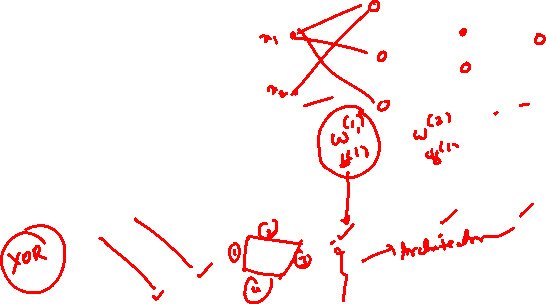 x₁
x₂
W⁽¹⁾ W⁽²⁾
XOR
① ② ③ ④
Architecture